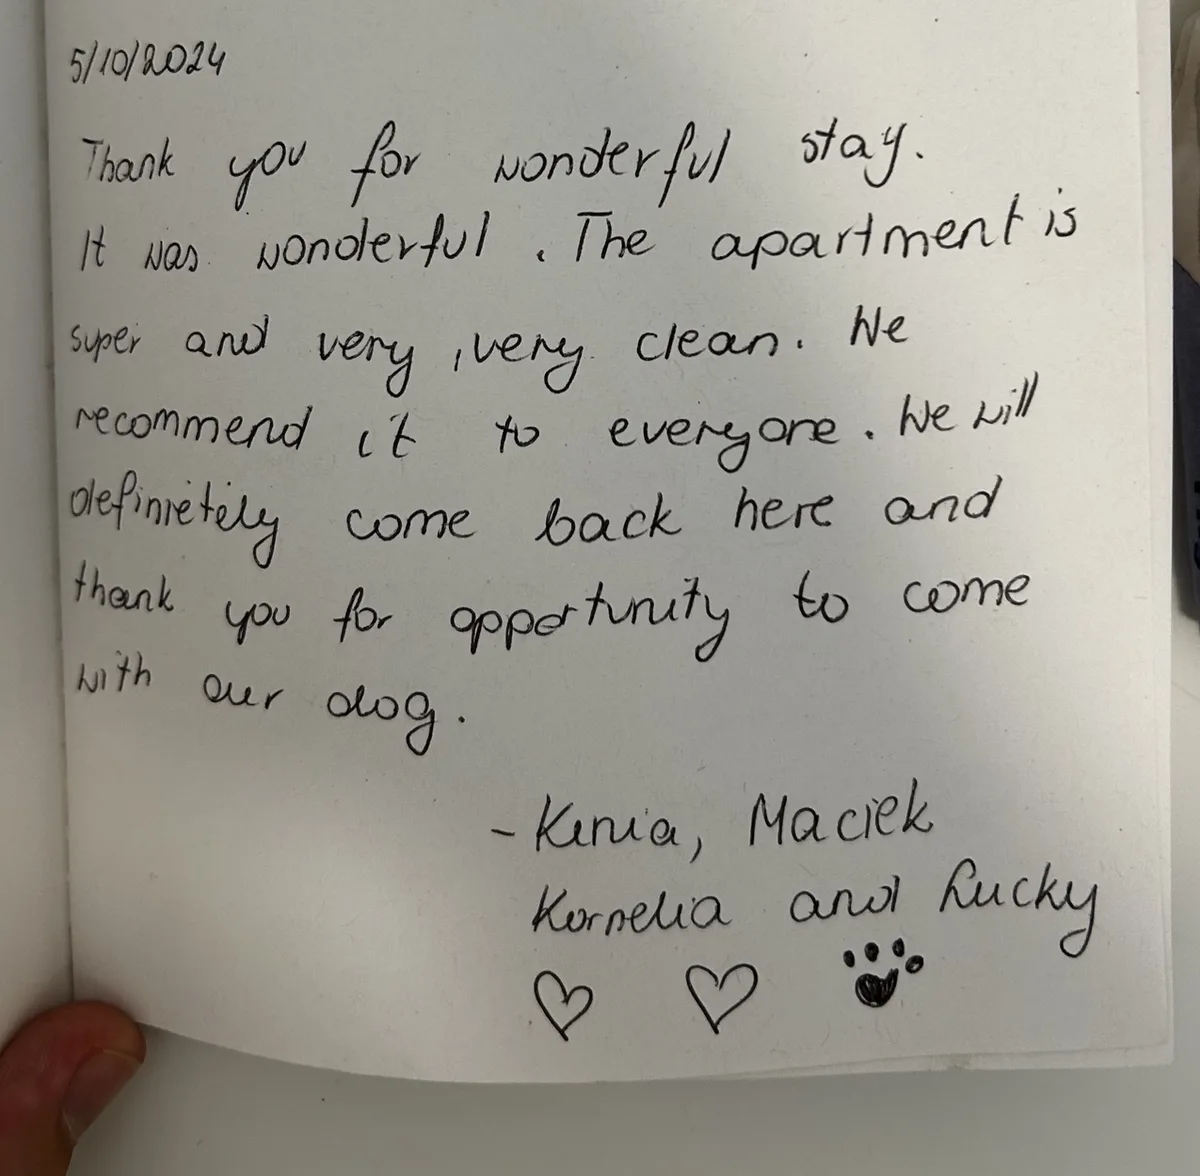 5/10/2024
Thank you for wonderful stay.
It was wonderful. The apartment is
super and very, very clean. We
recommend it to everyone. We will
definietely come back here and
thank you for opportunity to come
with our dog.
- Kinia, Maciek
Kornelia and Lucky